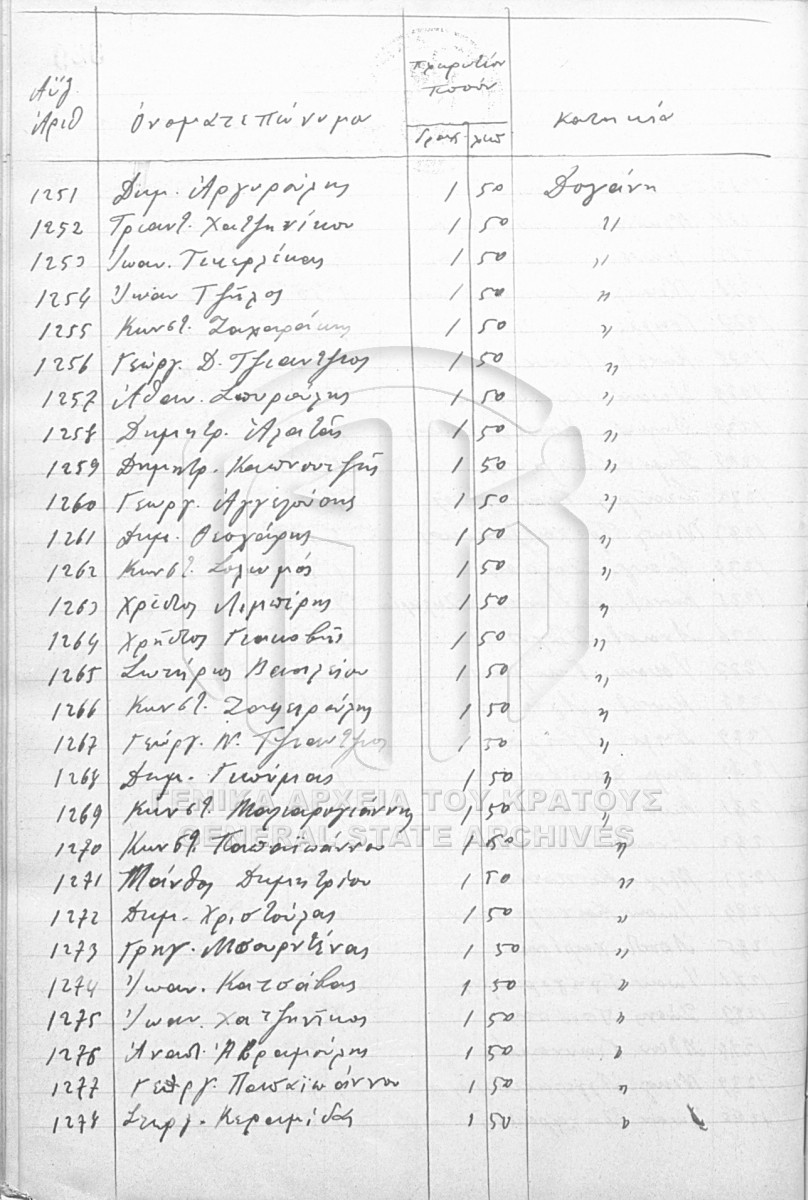 Αὔξ. Ἀριθ Ὀνοματεπώνυμον Πληρωτέον Ποσόν Δραχ. Λεπ Κατοικία
1251 Δημ. Ἀργυρούλης 1 50 Δογάνη
1252 Τριαντ. Χατζηνίκου 1 50 "
1253 Ἰωαν. Τεκερλέκας 1 50 "
1254 Ἰωάν Τζήλος 1 50 "
1255 Κωνστ. Ζαχαράκης 1 50 "
1256 Γεώργ. Δ. Τζιαντζιος 1 50 "
1257 Ἀθαν. Σπυρούλης 1 50 "
1258 Δημητρ. Ἀλατᾶς 1 50 "
1259 Δημητρ. Καπνουτζῆς 1 50 "
1260 Γεωργ. Ἀγγελούσης 1 50 "
1261 Δημ. Θεοχάρης 1 50 "
1262 Κωνστ. Σολωμός 1 50 "
1263 Χρῆστος Λιμπέρης 1 50 "
1264 Χρῆστος Γιακοβῆς 1 50 "
1265 Σωτήριος Βασιλείου 1 50 "
1266 Κωνστ. Ζαφειρούλης 1 50 "
1267 Γεώργ. Ν. Τζιαντζιος 1 50 "
1268 Δημ. Γκούμας 1 50 "
1269 Κωνστ. Μαλιαρογιάννης 1 50 "
ΓΕΝΙΚΑ ΑΡΧΕΙΑ ΤΟΥ ΚΡΑΤΟΥΣ
GENERAL STATE ARCHIVES
1270 Κωνστ. Παπαϊωάννου 1 50 "
1271 Μάνθος Δημητρίου 1 50 "
1272 Δημ. Χριστούλας 1 50 "
1273 Γρηγ. Μπουρντένας 1 50 "
1274 Ἰωαν. Κατσάβας 1 50 "
1275 Ἰωαν. Χατζηνῖκος 1 50 "
1276 Ἀναστ. Ἀβραμούλης 1 50 "
1277 Γεώργ. Παπαϊωάννου 1 50 "
1278 Στεργ. Κεραμίδας 1 50 "